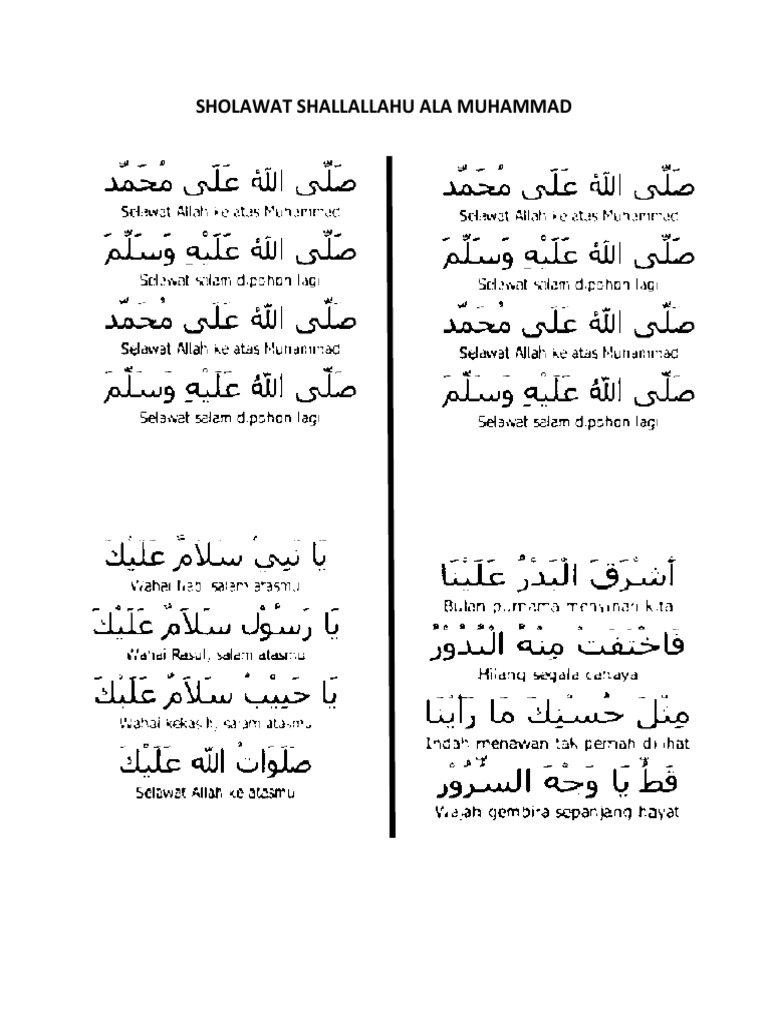 SHOLAWAT SHALLALLAHU ALA MUHAMMAD
صَلَّى اللهُ عَلَى مُحَمَّد
Selawat Allah ke atas Muhammad
صَلَّى اللهُ عَلَيْهِ وَسَلَّمَ
Selawat salam dipohon lagi
صَلَّى اللهُ عَلَى مُحَمَّد
Selawat Allah ke atas Muhammad
صَلَّى اللهُ عَلَيْهِ وَسَلَّمَ
Selawat salam dipohon lagi
يَا نَبِيْ سَلَامٌ عَلَيْكَ
Wahai Nabi salam atasmu
يَا رَسُوْلْ سَلَامٌ عَلَيْكَ
Wahai Rasul, salam atasmu
يَا حَبِيْبْ سَلَامٌ عَلَيْكَ
Wahai kekasih, salam atasmu
صَلَوَاتُ الله عَلَيْكَ
Selawat Allah ke atasmu
صَلَّى اللهُ عَلَى مُحَمَّد
Selawat Allah ke atas Muhammad
صَلَّى اللهُ عَلَيْهِ وَسَلَّمَ
Selawat salam dipohon lagi
صَلَّى اللهُ عَلَى مُحَمَّد
Selawat Allah ke atas Muhammad
صَلَّى اللهُ عَلَيْهِ وَسَلَّمَ
Selawat salam dipohon lagi
أَشْرَقَ الْبَدْرُ عَلَيْنَا
Bulan purnama menyinari kita
فَاخْتَفَتْ مِنْهُ الْبُدُوْرُ
Hilang segala cahaya
مِثْلَ حُسْنِكَ مَا رَأَيْنَا
Indah menawan tak pernah dilihat
قَطُّ يَا وَجْهَ السُّرُوْرْ
Wajah gembira sepanjang hayat